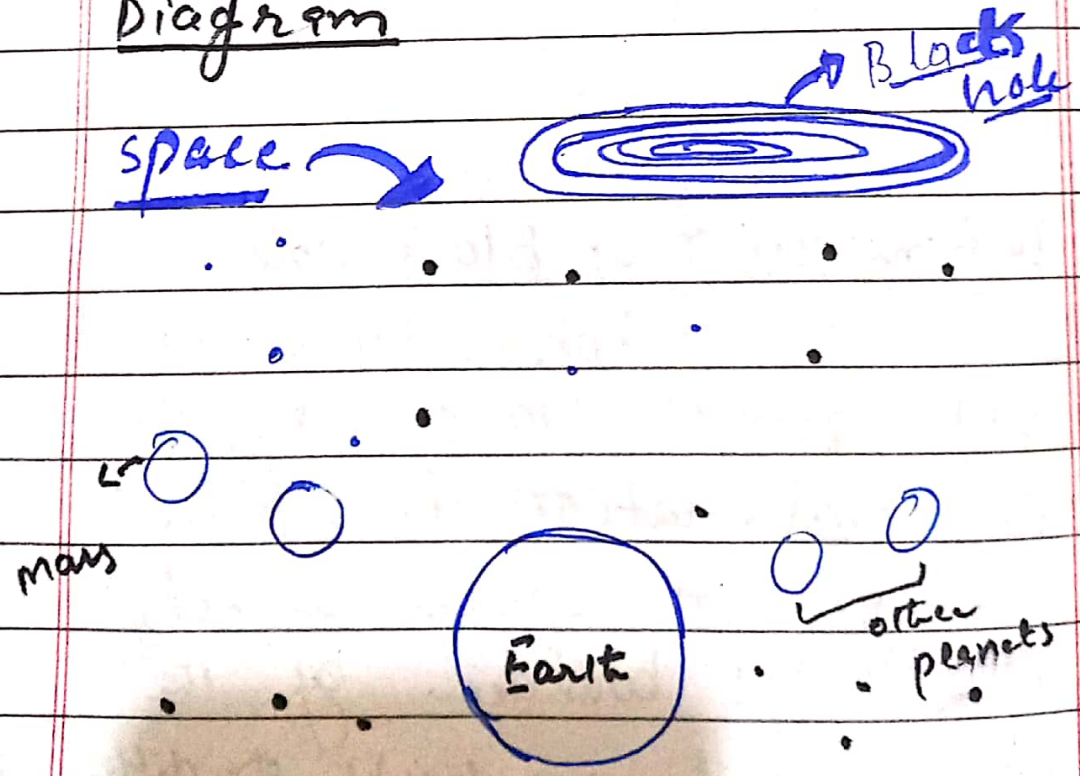 Diagram
Black
hole
space
Mars
Earth
other
planets